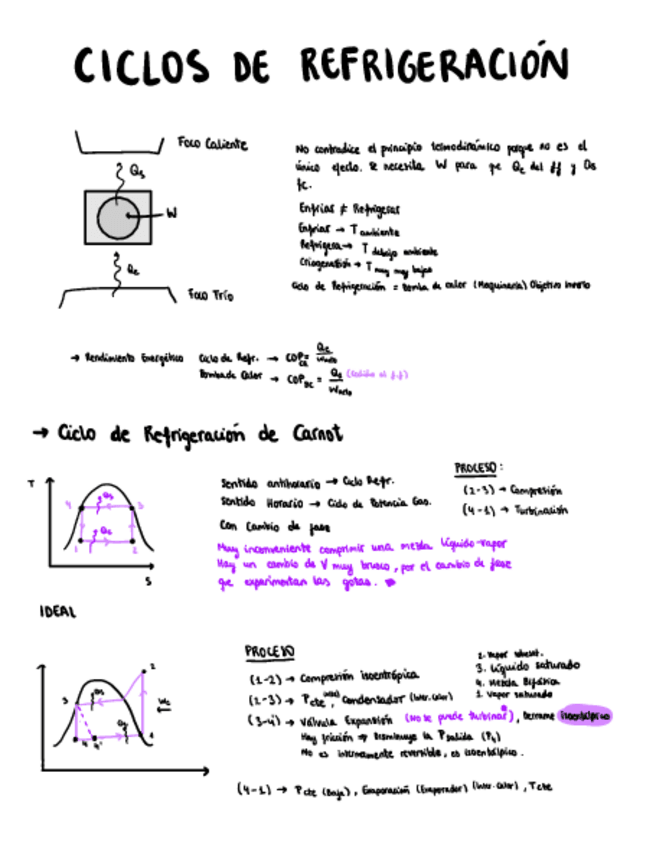 CICLOS DE REFRIGERACIÓN
Foco Caliente
Qs
W
Qe
Foco Frío
No contradice el principio termodinámico porque no es el
único efecto. Se necesita W para que Qe del ff y Qs
fc.
Enfriar ≠ Refrigerar
Enfriar → T ambiente
Refrigera → T debajo ambiente
Criogenización → T muy muy bajas
Ciclo de Refrigeración = Bomba de calor (Maquinaria) Objetivo
→ Rendimiento Energético Ciclo de Refr. → COP = Qe / Wneto
Bomba de Calor → COP BC = Qs / Wneto
→ Ciclo de Refrigeración de Carnot
T
4 Qs 3
Qe
1 2
S
Sentido antihorario → Ciclo Refr.
Sentido Horario → Ciclo de Potencia Gas.
Con Cambio de fase
Muy inconveniente comprimir una mezcla líquido-vapor
Hay un cambio de V muy brusco, por el cambio de fase
que experimentan las gotas.
PROCESO:
(2-3) → Compresión
(4-1) → Turbinación
IDEAL
2
3 Qs
Wc
4 4' 1
PROCESO
(1-2) → Compresión isoentrópica
(2-3) → Pcte, Condensador (Inter. calor)
(3-4) → Válvula Expansión (No se puede turbinar), Derrame isoentálpico
Hay fricción → Disminuye la Psalida (P4)
No es internamente reversible, es isoentálpico.
(4-1) → Pcte (Baja), Evaporación (Evaporador) (Inter. calor), Tcte
3. Líquido saturado
4. Mezcla Bifásica
1. Vapor saturado